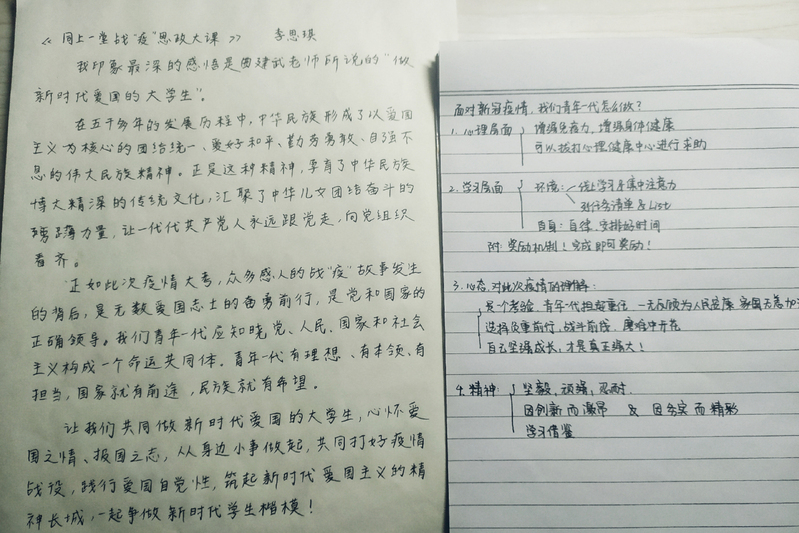 《同上一堂战"疫"思政大课》 李思琪
我印象最深的感悟是曲建武老师所说的"做
新时代爱国的大学生"。
在五千多年的发展历程中,中华民族形成了以爱国
主义为核心的团结统一、爱好和平、勤劳勇敢、自强不
息的伟大民族精神。正是这种精神,孕育了中华民族
博大精深的传统文化,汇聚了中华儿女团结奋斗的
磅礴力量,让一代代共产党人永远跟党走,向党组织
看齐。
正如此次疫情大考,众多感人的战"疫"故事发生
的背后,是无数爱国志士的奋勇前行,是党和国家的
正确领导。我们青年一代应知晓党、人民、国家和社会
主义构成一个命运共同体。青年一代有理想、有本领、有
担当,国家就有前途,民族就有希望。
让我们共同做新时代爱国的大学生,心怀爱
国之情、报国之志,从身边小事做起,共同打好疫情
战役,践行爱国自觉性,筑起新时代爱国主义的精
神长城,一起争做新时代学生楷模!
面对新冠疫情,我们青年一代怎么做?
1. 心理层面 增强免疫力,增强身体健康
可以拨打心理健康中心进行求助
2. 学习层面 环境: 线上学习要集中注意力
列任务清单 & List
自身: 自律,安排好时间
附: 奖励机制! 完成即可奖励!
3. 心态,对此次疫情的理解:
是个考验,青年一代担起重任,一无反顾为人民应康
选择负重前行,战斗前线,磨难中开花
自己坚强成长,才是真正强大!
4. 精神 坚毅,顽强,忍耐.
因创新而激昂 & 因务实而精彩
学习借鉴